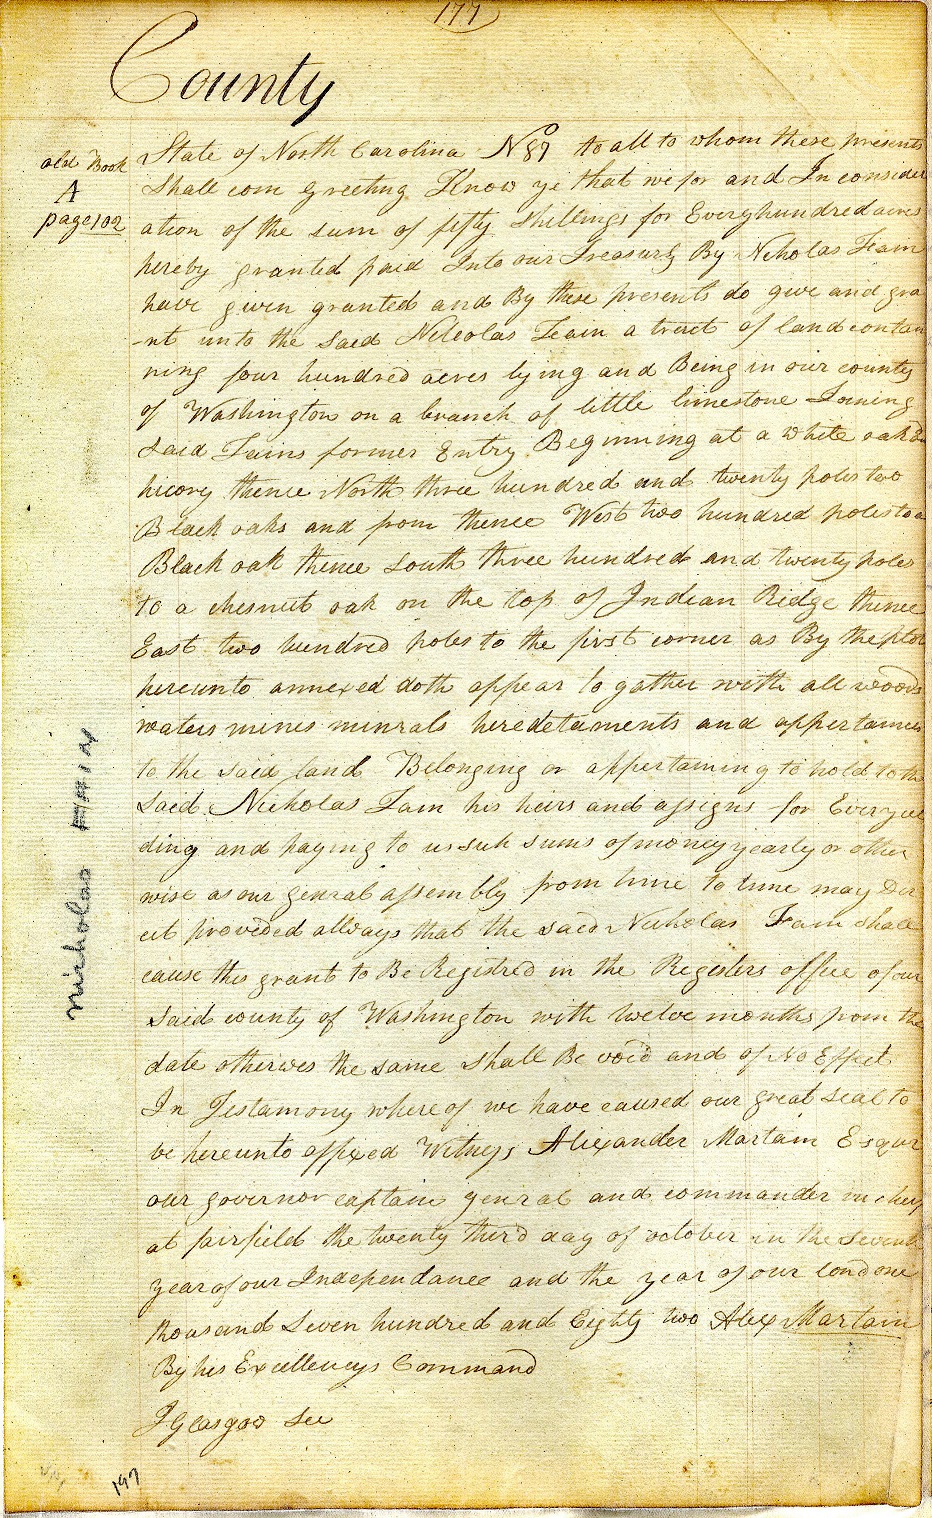 177
County
old Book
A
page 102
State of North Carolina No 89 to all to whom these presents
Shall com greeting Know ye that we for and In consider
ation of the sum of fifty shillings for Every hundred acres
hereby granted paid Into our Treasury By Nicholas Fain
have given granted and By these presents do give and gra
-nt unto the said Nicolas Fain a tract of land contan
ning four hundred acres lying and Being in our county
of Washington on a branch of little limestone Joining
said Fains former Entry Beginning at a White oak &
hicory thence North three hundred and twenty poles two
Black oaks and from thence West two hundred poles to a
Black oak thence South three hundred and twenty poles
to a chesnut oak on the top of Indian Ridge thence
East two hundred poles to the first corner as By the plot
hereunto annexed doth appear to gather with all woods
waters mines minrals heredetaments and appertances
to the said land Belonging or appertaining to hold to the
said Nicholas Fain his heirs and assigns for Ever yeel
ding and paying to us such sums of money yearly or other
wise as our genral assembly from time to time may Dir
ect provided allways that the said Nicholas Fain shall
cause this grant to Be Registred in the Registers office of our
said county of Washington with twelve months from the
date otherwes the same shall Be void and of No Effect
In Testamony where of we have caused our great seal to
be hereunto affixed Witness Alixander Martain Esqur
our governor captain genral and commander in cheif
at fairfield the twenty third day of october in the seventh
year of our Independance and the year of our Lord one
thousand Seven hundred and Eighty two Alex Martain
By his Excellencys Command
J Glasgow See
Nicholas Fain
197